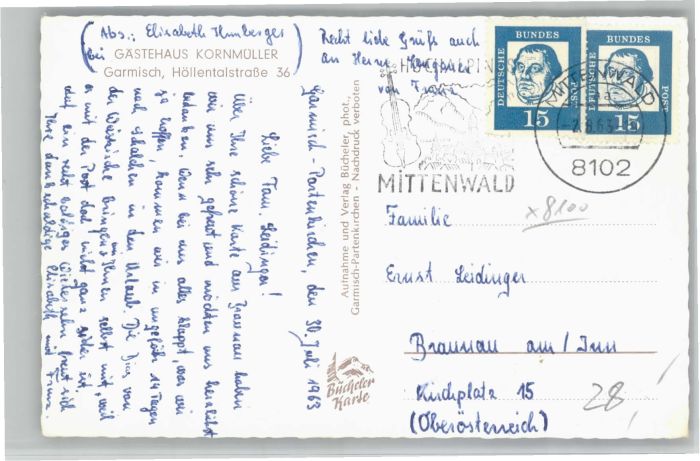 (Abs.: Elisabeth Humberger)
bei GÄSTEHAUS KORNMÜLLER
Garmisch, Höllentalstraße 36
Recht liebe Grüße auch
an Herrn
von Franz
Garmisch-Partenkirchen, den 30. Juli 1963
Liebe Fam. Leidinger!
Über Ihre schöne Karte aus Braunau haben
wir uns sehr gefreut und möchten uns herzlichst
bedanken. Wenn bei uns alles klappt, was wir
ja hoffen, kommen wir in ungefähr 14 Tagen
nach in den Urlaub. Die Dias von
der bringen wir Ihnen selbst mit, weil
es mit der Post doch nicht ganz sicher ist.
Auf ein recht baldiges Wiedersehn freut sich
Ihre dankschuldige Elisabeth und Franz.
Aufnahme und Verlag Bücheler, phot.,
Garmisch-Partenkirchen - Nachdruck verboten
Bücheler
Karte
DEUTSCHE BUNDESPOST
15
DEUTSCHE BUNDESPOST
15
MITTENWALD
8102
MITTENWALD
x8100
Familie
Ernst Leidinger
Braunau am/Inn
Kirchplatz 15
(Oberösterreich)
28